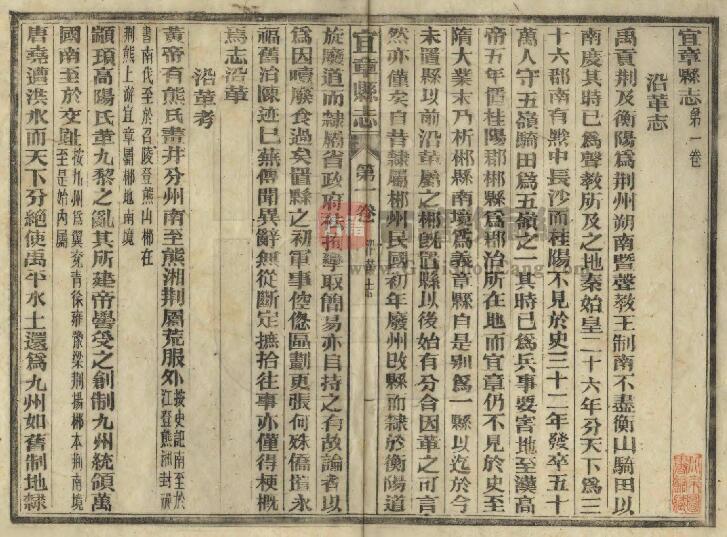 宜章縣志第一卷
沿革志
禹貢荆及衡陽爲荆州朔南暨聲教王制南不盡衡山騎田以
南度其時已爲聲教所及之地秦始皇二十六年分天下爲三
十六郡南有黔中長沙而桂陽不見於史三十二年發卒五十
萬人守五嶺騎田爲五嶺之一其時已爲兵事要害地至漢高
帝五年僭桂陽郡郴縣爲郡治所在地而宜章仍不見於史至
隋大業末乃析郴縣南境爲義章縣自是别爲一縣以迄於今
未置縣以前沿革屬之郴旣置縣以後始有分合因革之可言
然亦僅矣自昔隸屬郴州民國初年廢州改縣而隸於衡陽道
旋廢道而隸屬省政府
取簡易亦自持之有故論者以
爲因噎廢食過矣置縣之初軍事倥偬區劃更張何殊僑置永
福舊治陳迹已蕪傳聞異辭無從斷定摭拾往事亦僅得梗概
焉志沿革
沿革考
黃帝有熊氏畫井分州南至熊湘荆屬荒服外按史記南至於
江登熊湘封禪
書南伐至於召陵登熊山郴在
荆熊上游宜章屬郴地南境
顓頊高陽氏革九黎之亂其所建帝嚳受之創制九州統領萬
國南至於交趾按九州爲冀兗靑徐雍豫梁荆揚郴本荆南境
至是始內屬
唐堯遭洪水而天下分絕使禹平水土還爲九州如舊制地隸
宜章縣志
第一卷
沿革志
一